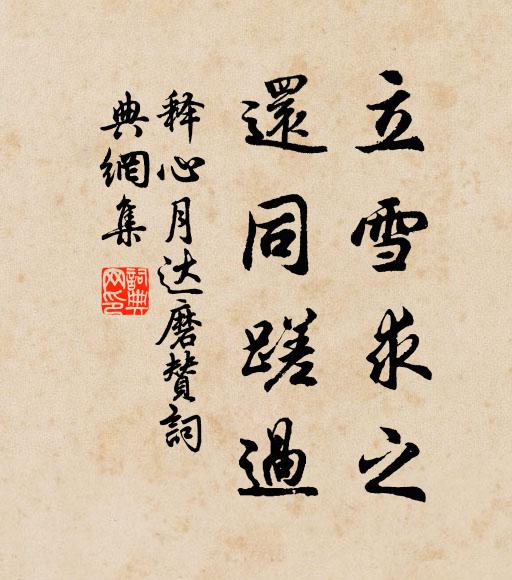 立雪求之
還同蹉過
释心月达磨贊詞
典網集
詞典网印